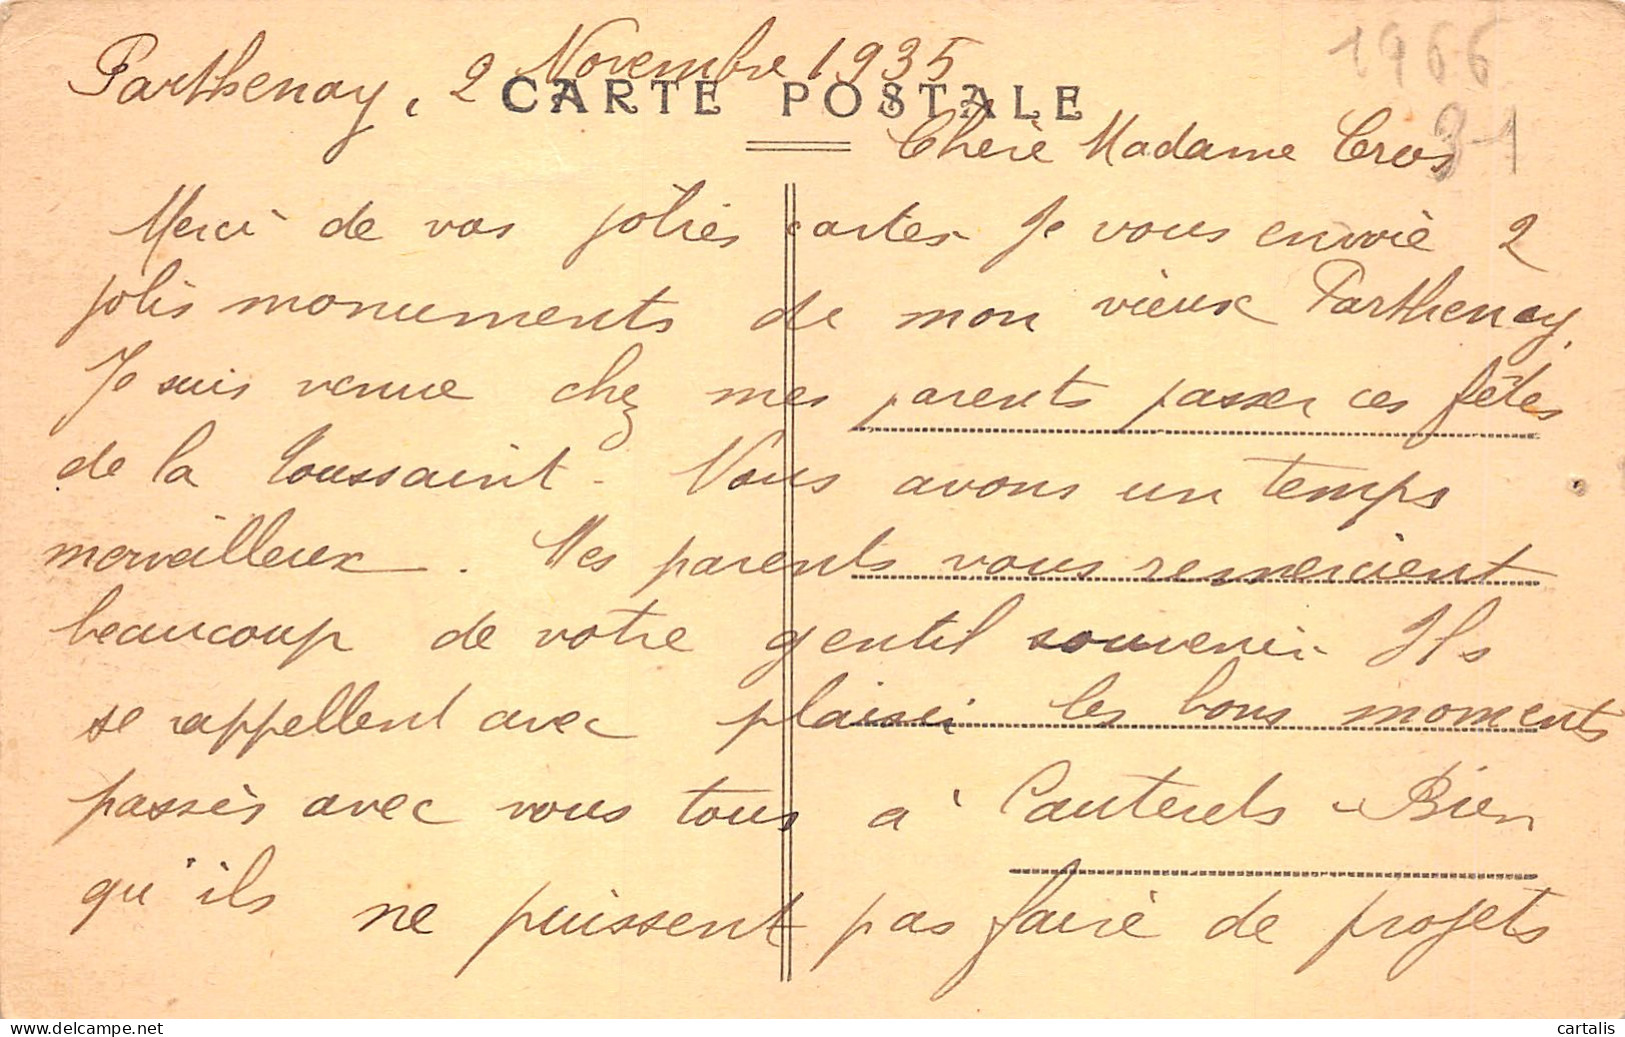 Parthenay, 2 Novembre 1935
1966
CARTE POSTALE
31
Chère Madame Cros
Merci de vos jolies cartes Je vous envoie 2
jolis monuments de mon vieux Parthenay.
Je suis venue chez mes parents passer ces fêtes
de la Toussaint - Nous avons un temps
merveilleux. Mes parents vous remercient
beaucoup de votre gentil souvenir. Ils
se rappellent avec plaisir les bons moments
passés avec vous tous à Cauterets - Bien
qu'ils ne puissent pas faire de projets
cartalis
www.delcampe.net